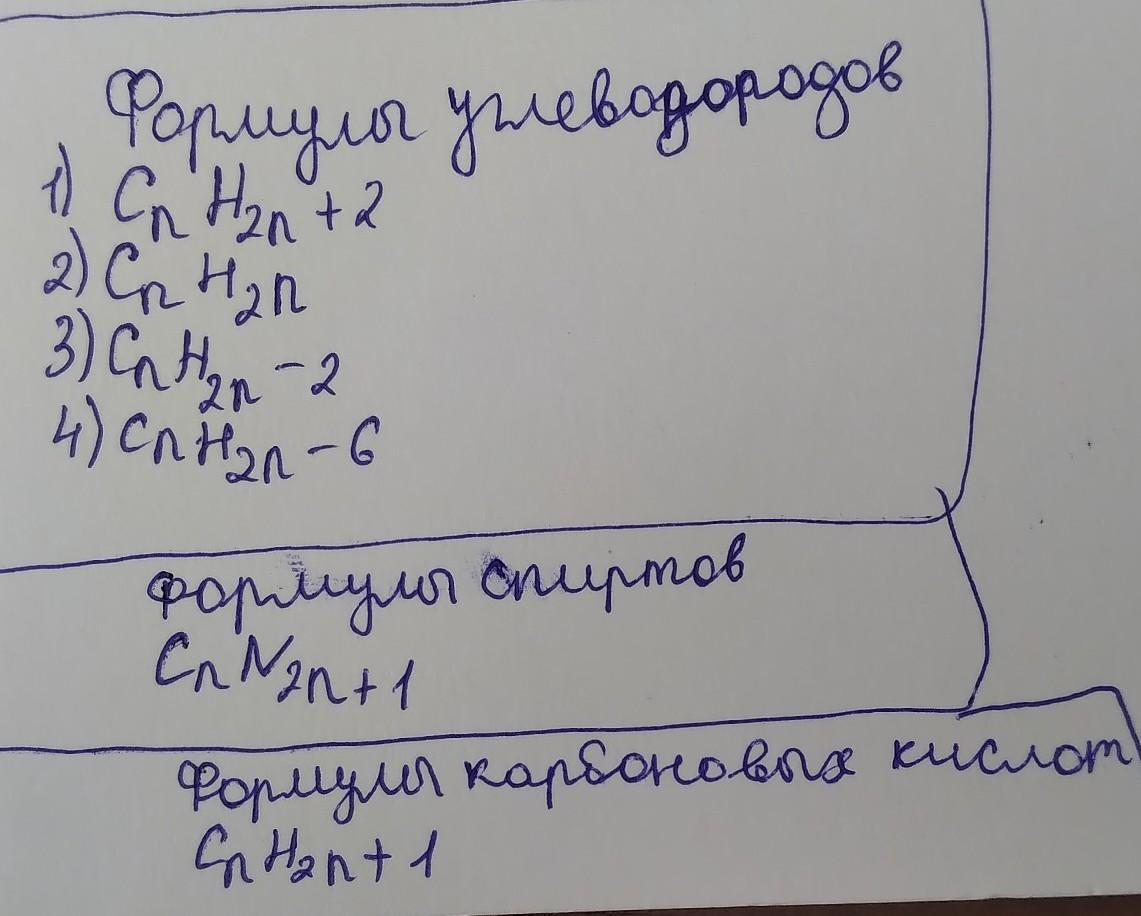 Формулы углеводородов
1) CnH2n+2
2) CnH2n
3) CnH2n-2
4) CnH2n-6
Формулы спиртов
CnN2n+1
Формулы карбоновых кислот
CnH2n+1